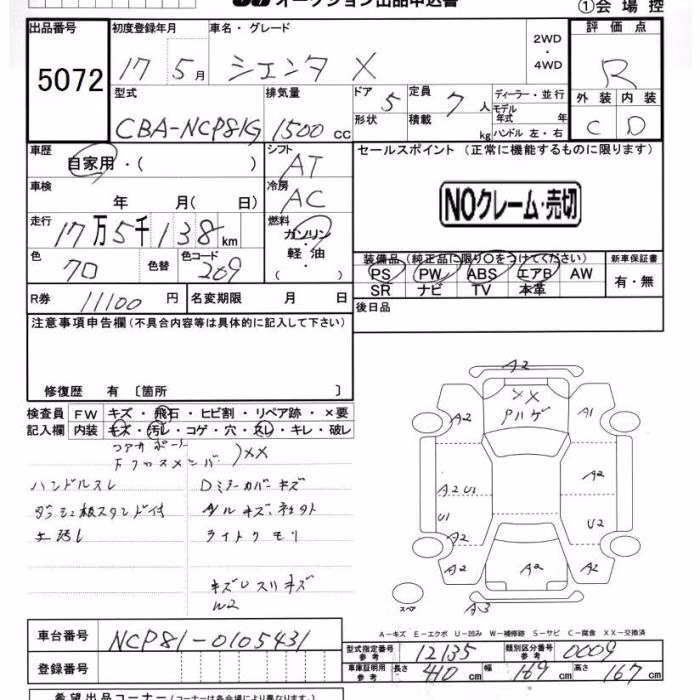 オークション出品申込書 ①会場控
出品番号 初度登録年月 車名・グレード 2WD ・4WD 評価点
5072 17 5月 シエンタ X R
型式 排気量 ドア 5 定員 7人 ディーラー・並行 外装 内装
CBA-NCP81G 1500cc 形状 積載 kg モデル年式 年 ハンドル 左・右 C D
車歴 シフト セールスポイント (正常に機能するものに限ります)
自家用・( ) AT
車検 年 月( 日) 冷房 AC NOクレーム・売切
走行 17万5千138km 燃料 ガソリン・軽油・( )
色 クロ 色替 色コード 209 装備品 (純正品に限り○をつけてください) 新車保証書
PS PW ABS エアB AW 有・無
SR ナビ TV 本革
R券 11100円 名変期限 月 日 後日品
注意事項申告欄(不具合内容等は具体的に記入して下さい)
修復歴 有〔箇所 〕
検査員 FW キズ・飛石・ヒビ割・リペア跡・×要
記入欄 内装 キズ・汚レ・コゲ・穴・スレ・キレ・破レ
コアサポート
Fクロスメンバ )XX
ハンドルスレ Dミラーカバーキズ
ダッシュ板スタンド付
ライトクモリ
W2
A2
XX
A2 A1
A2 U1 A2
U1 U2
A2
A2 A2 A2
スペア A3
A-キズ E-エクボ U-凹み W-補修跡 S-サビ C-腐食 XX-交換済
車台番号 NCP81-0105431 型式指定番号 参考 12135 類別区分番号 参考 0009
登録番号 車庫証明用 参考 長さ 410cm 幅 169cm 高さ 167cm
希望出品コーナー